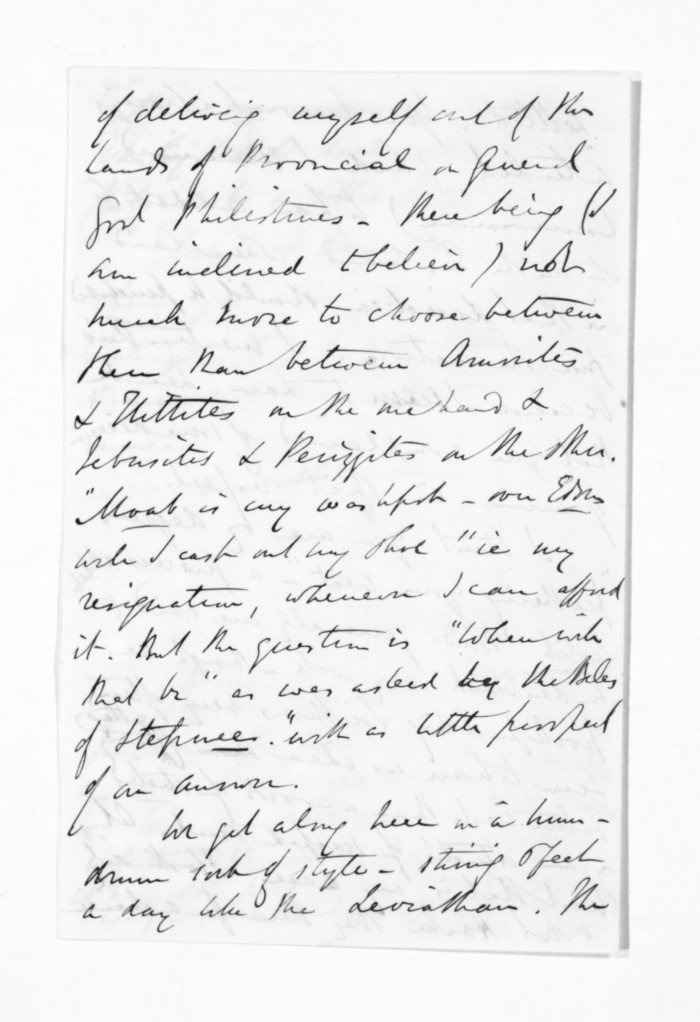 of delivering myself out of the
hands of Provincial or General
God Philistines - there being (I
am inclined to believe) not
much more to choose between
them than between Amorites
& Hittites on the one hand &
Jebusites & Perizzites on the other.
"Moab is my washpot - over Edom
will I cast out my shoe" ie my
resignation, whenever I can afford
it. But the question is "When will
that be" as was asked by the Bells
of Stepnee. "with as little prospect
of an answer.
We get along here in a hum-
drum sort of style - string 6 feet
a day like the Leviathan. The